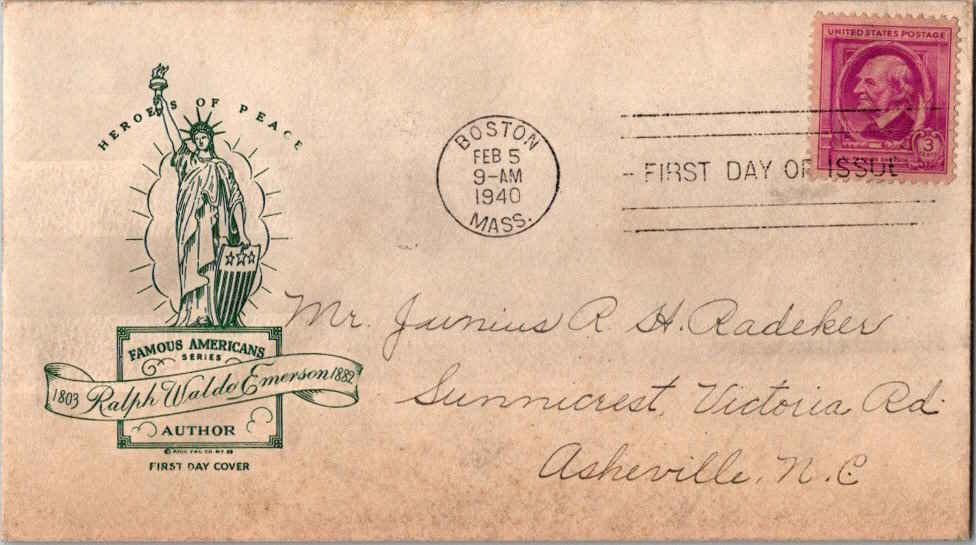 HEROES OF PEACE
FAMOUS AMERICANS
SERIES
1803 Ralph Waldo Emerson 1882
AUTHOR
FIRST DAY COVER
BOSTON
FEB 5
9-AM
1940
MASS.
UNITED STATES POSTAGE
3
- FIRST DAY OF ISSUE
Mr. Junius R. H. Radeker
Sunnicrest, Victoria Rd.
Asheville, N. C